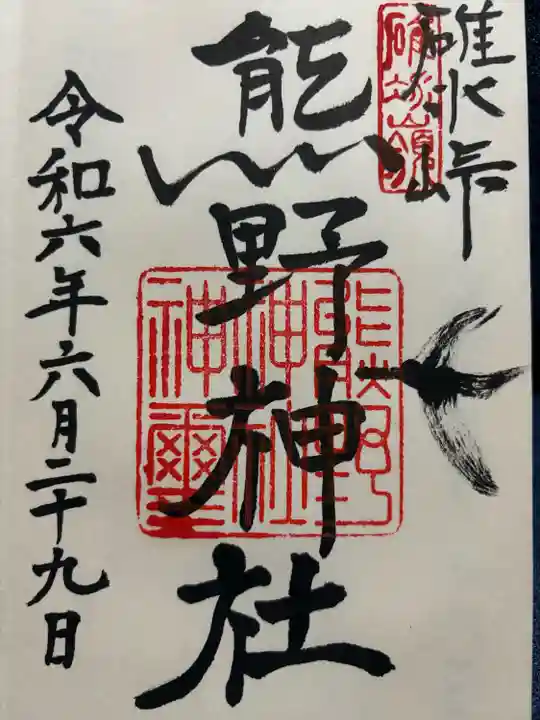 碓氷峠
熊野神社
令和六年六月二十九日
熊野神社神璽